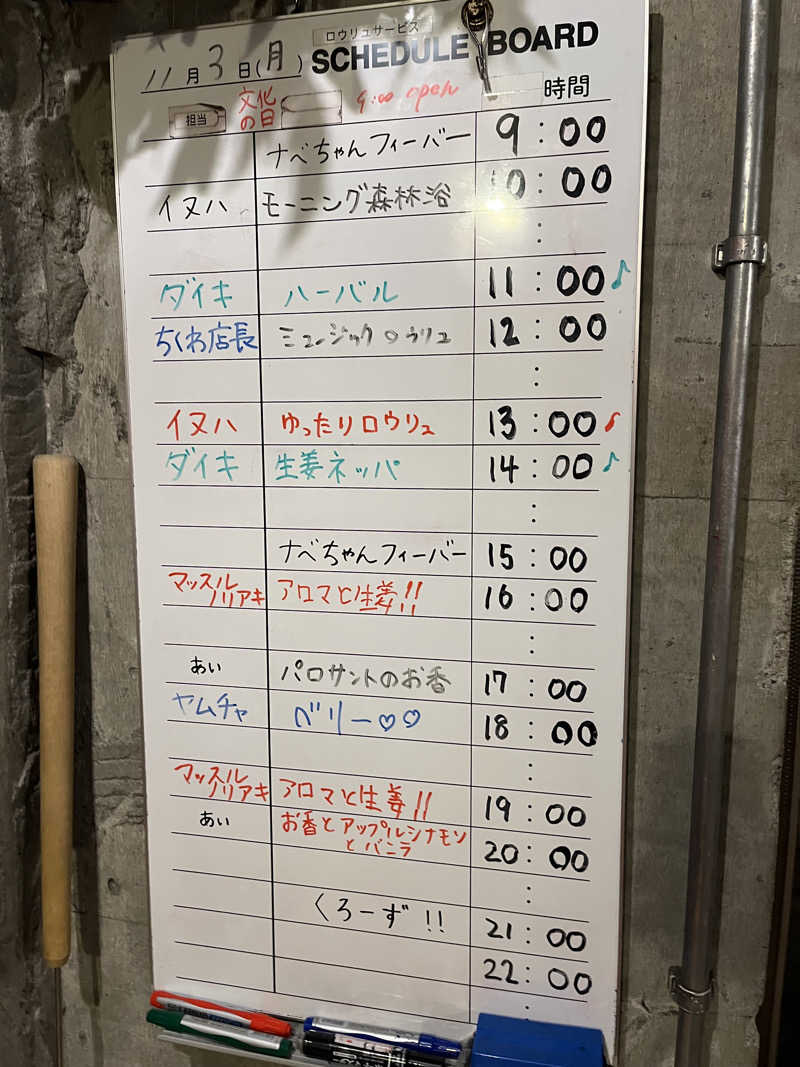 ロウリュサービス
SCHEDULE BOARD
11月3日(月)
文化の日 9:00 open
担当 時間
ナベちゃんフィーバー 9:00
イヌハ モーニング森林浴 10:00
:
ダイキ ハーバル 11:00♪
ちくわ店長 ミュージックロウリュ 12:00
:
イヌハ ゆったりロウリュ 13:00♪
ダイキ 生姜ネッパ 14:00♪
:
ナベちゃんフィーバー 15:00
マッスルノリアキ アロマと生姜!! 16:00
:
あい パロサントのお香 17:00
ヤムチャ ベリー♡♡ 18:00
:
マッスルノリアキ アロマと生姜!! 19:00
あい お香とアップルシナモンとバニラ 20:00
:
くろーず!! 21:00
22:00
: